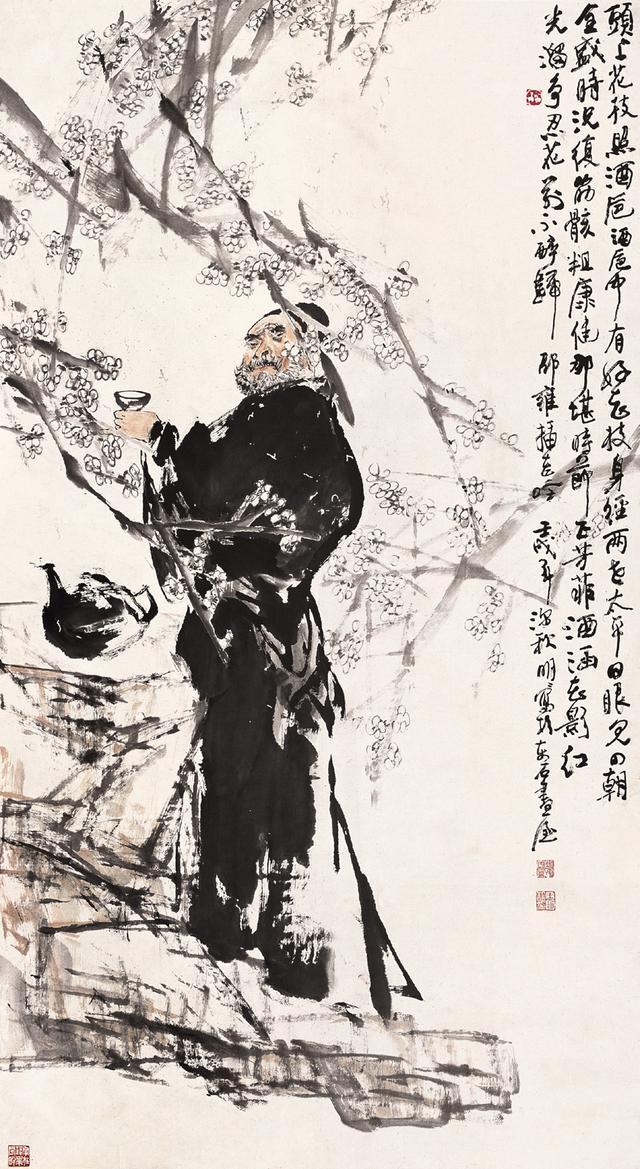 頭上花枝照酒卮酒卮中有好花枝身經兩世太平日眼見四朝
全盛時況復筋骸粗康健那堪時節正芳菲酒涵花影紅
光溜爭忍花前不醉歸 邵雍插花吟 壬戌年深秋明寫於石畫屋